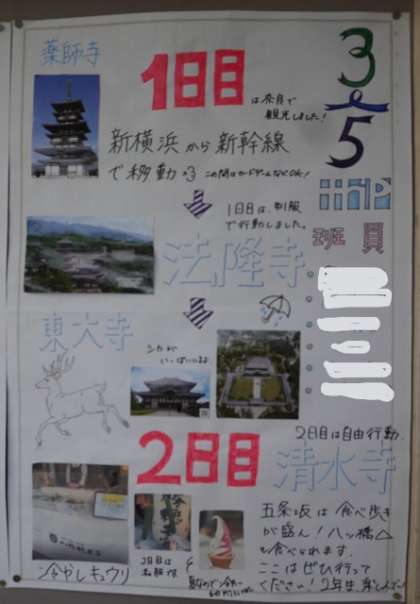 薬師寺
1日目
は奈良で
観光しました!
3
5
新横浜から新幹線
で移動
班員
1日目は、制服
で行動しました。
法隆寺
東大寺
シカが
いっぱいいるよ
2日目は自由行動
2日目
清水寺
五条坂は食べ歩き
が盛ん!八ッ橋
も食べられます.
ここはぜひ行って
ください!
冷やしキュウリ
2日目は
私服です